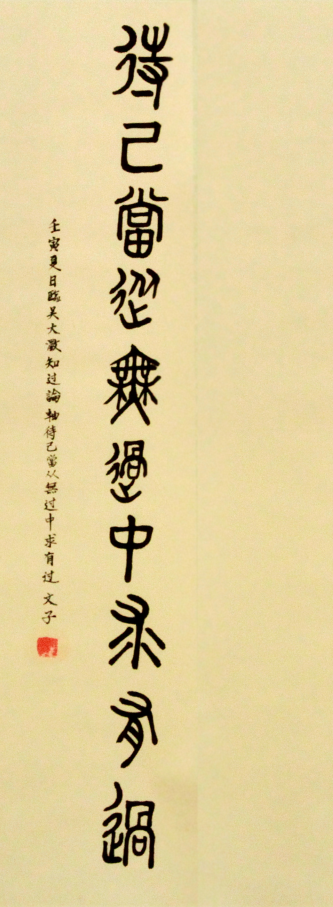 待己當從無過中求有過
壬寅夏日臨吴大澂知过論軸待己當从無过中求有过 文子